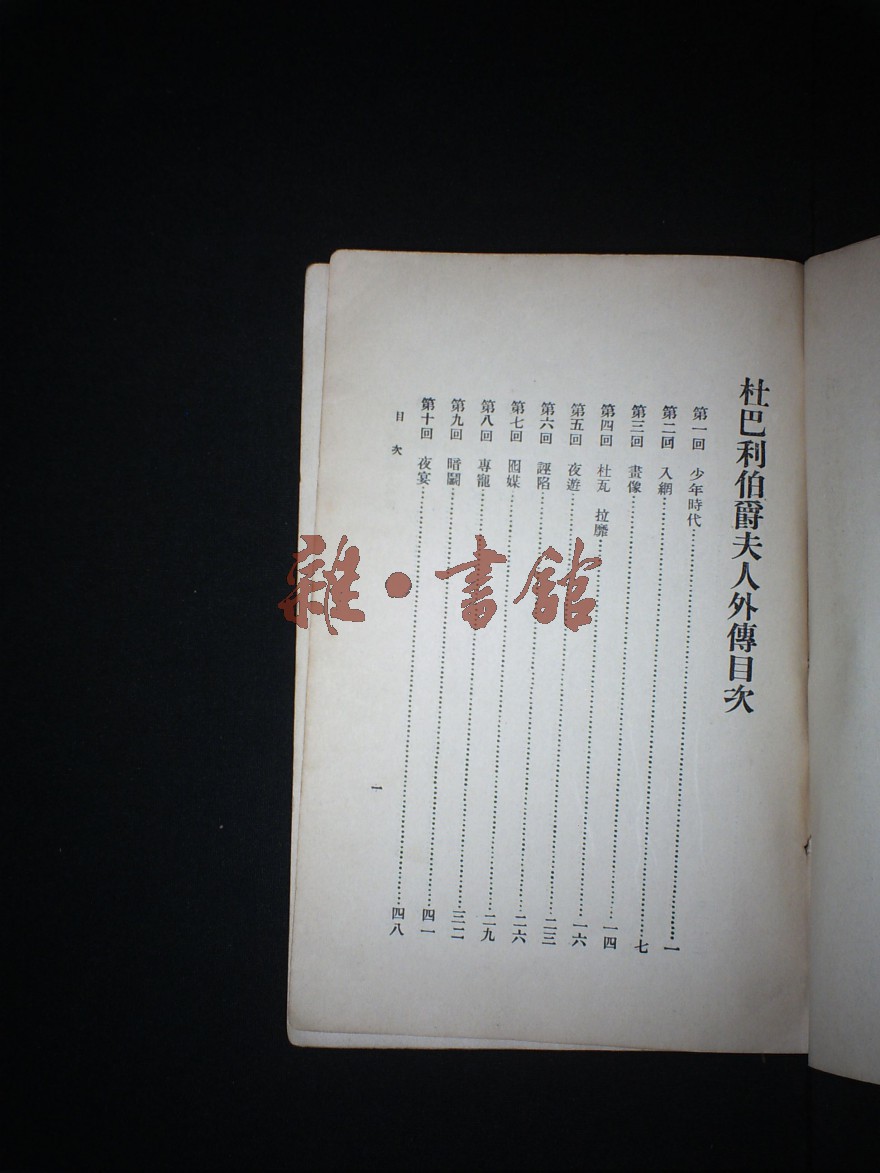 杜巴利伯爵夫人外傳目次
第一回 少年時代……一
第二回 入網……七
第三回 畫像……一四
第四回 杜瓦 拉靡……一六
第五回 夜遊……二三
第六回 誣陷……二六
第七回 囮媒……二九
第八回 專寵……三二
第九回 暗鬭……四一
第十回 夜宴……四八
目次
一
雜·書館